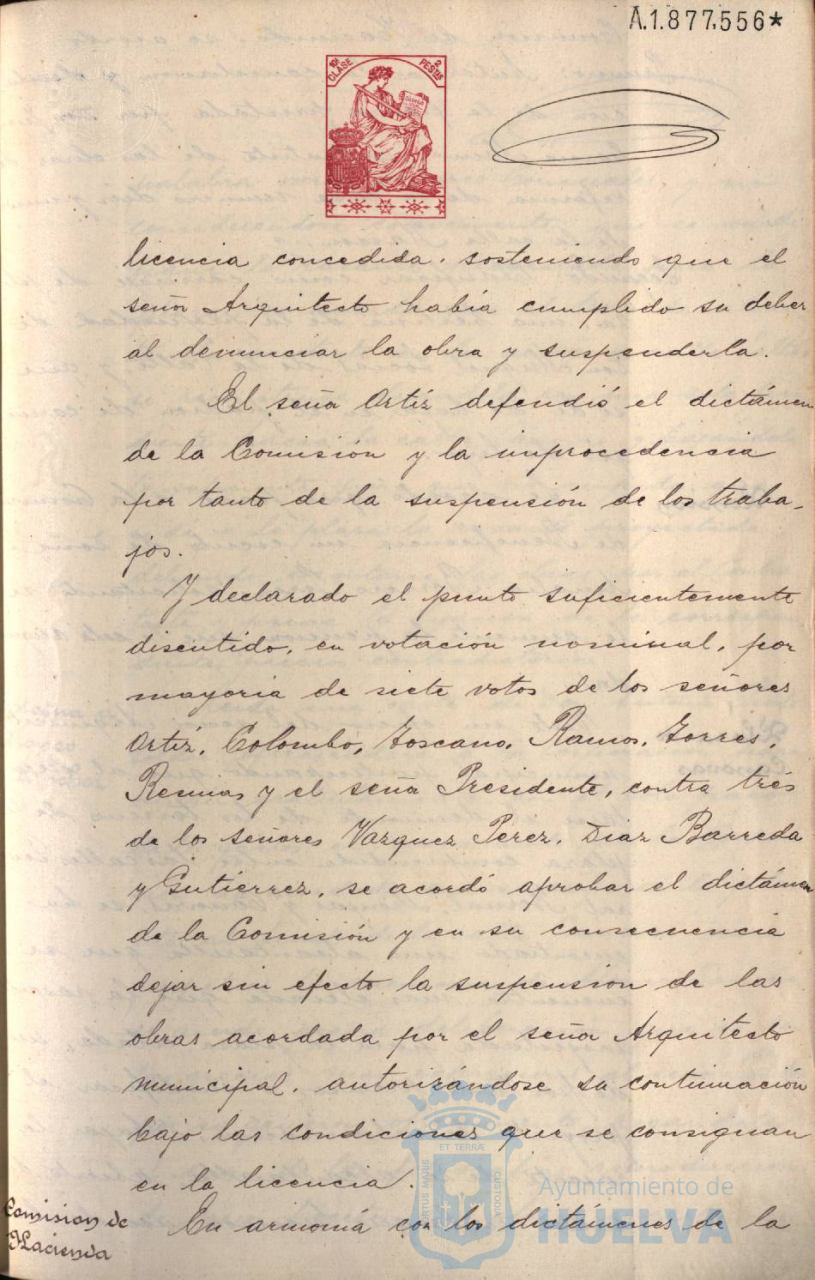 A.1.877.556*
10ª CLASE
2 PESTAS
licencia concedida, sosteniendo que el
señor Arquitecto había cumplido su deber
al denunciar la obra y suspenderla.
El señor Ortíz defendió el dictámen
de la Comisión y la improcedencia
por tanto de la suspensión de los traba-
jos.
Y declarado el punto suficientemente
discutido, en votación nominal, por
mayoria de siete votos de los señores
Ortíz, Colombo, Toscano, Ramos, Torres,
y el señor Presidente, contra trés
de los señores Vazquez Perez, Diaz Barreda
y Gutiérrez, se acordó aprobar el dictámen
de la Comisión y en su consecuencia
dejar sin efecto la suspensión de las
obras acordada por el señor Arquitecto
municipal, autorizándose su continuación
bajo las condiciones que se consignan
en la licencia.
Comision de
Hacienda
En armoniá con los dictámenes de la
ET TERRÆ
CUSTODIA
Ayuntamiento de
HUELVA